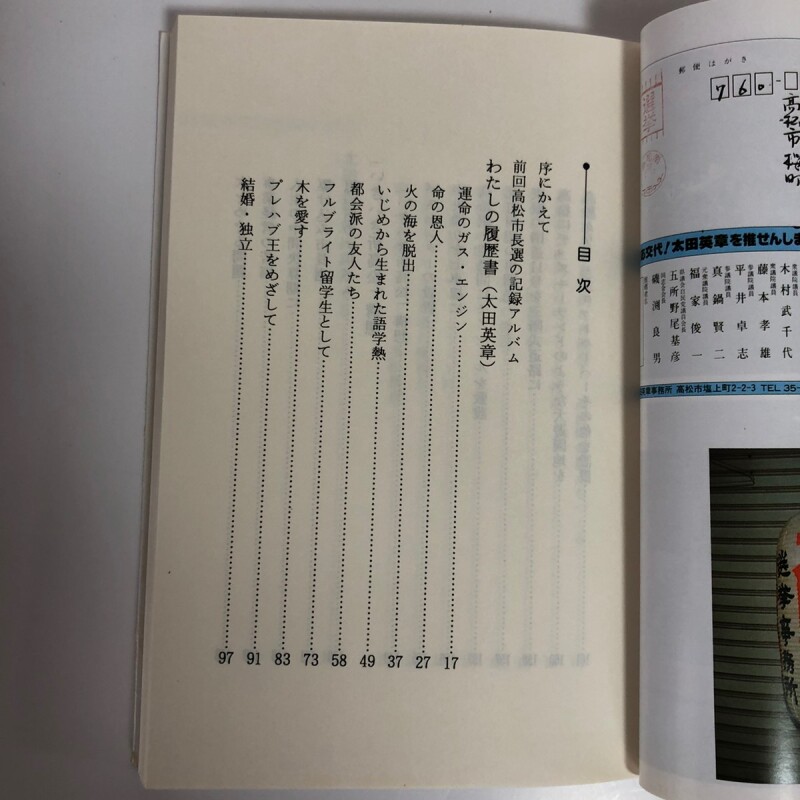 目次
序にかえて
前回高松市長選の記録アルバム
わたしの履歴書（太田英章）
運命のガス・エンジン 17
命の恩人 27
火の海を脱出 37
いじめから生まれた語学熱 49
都会派の友人たち 58
フルブライト留学生として 73
木を愛す 83
プレハブ王をめざして 91
結婚・独立 97
郵便はがき
760-
高松市
選挙
交代！太田英章を推せんしま
衆議院議員 木村武千代
衆議院議員 藤本孝雄
参議院議員 平井卓志
参議院議員 真鍋賢二
元衆議院議員 福家俊一
五所野尾基彦
磯淵良男
事務所 高松市塩上町2-2-3 TEL 35-
選挙事務所